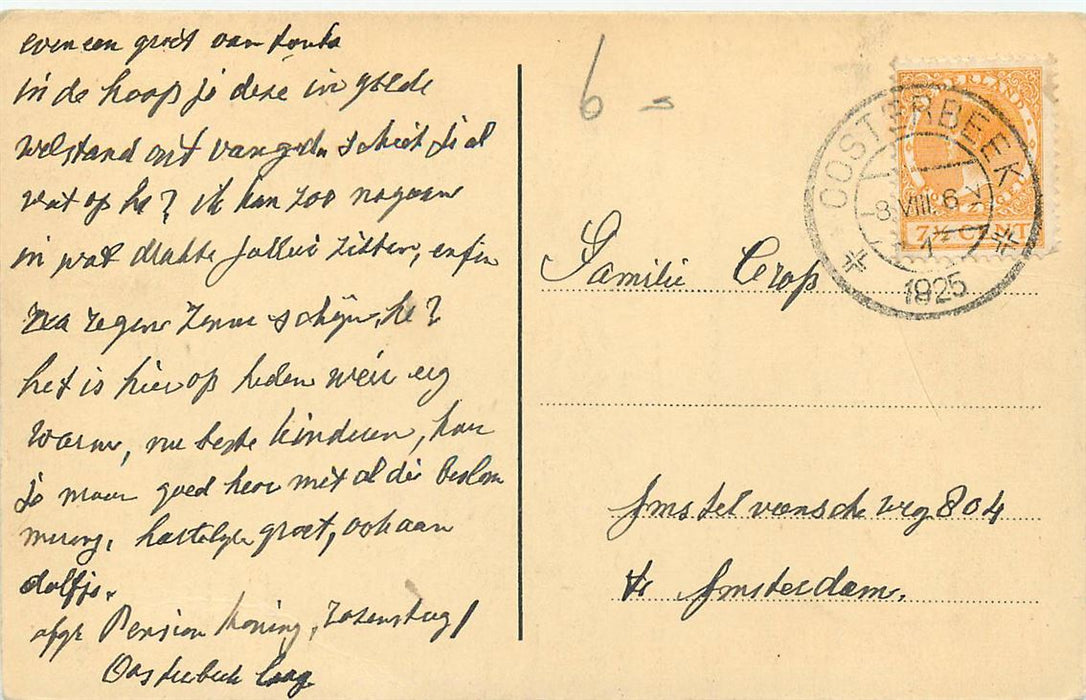 even een groet van tante
in de hoop je deze in goede
welstand ontvangen schiet je al
wat op he? ik kan zoo nagaan
in wat drukte jullie zitten, enfin
na regen zonneschijn, he?
het is hier op heden weer erg
warm, nu beste kinderen, hou
je maar goed hoor met al die beslom
mering, hartelijke groet, ook aan
dolfje.
afz. Pension Koning,
Oosterbeek laag
6 -
OOSTERBEEK
-8.VIII. 6-7
1925
7½ CENT
Familie Crop
Amstelveensche weg 804
te Amsterdam.